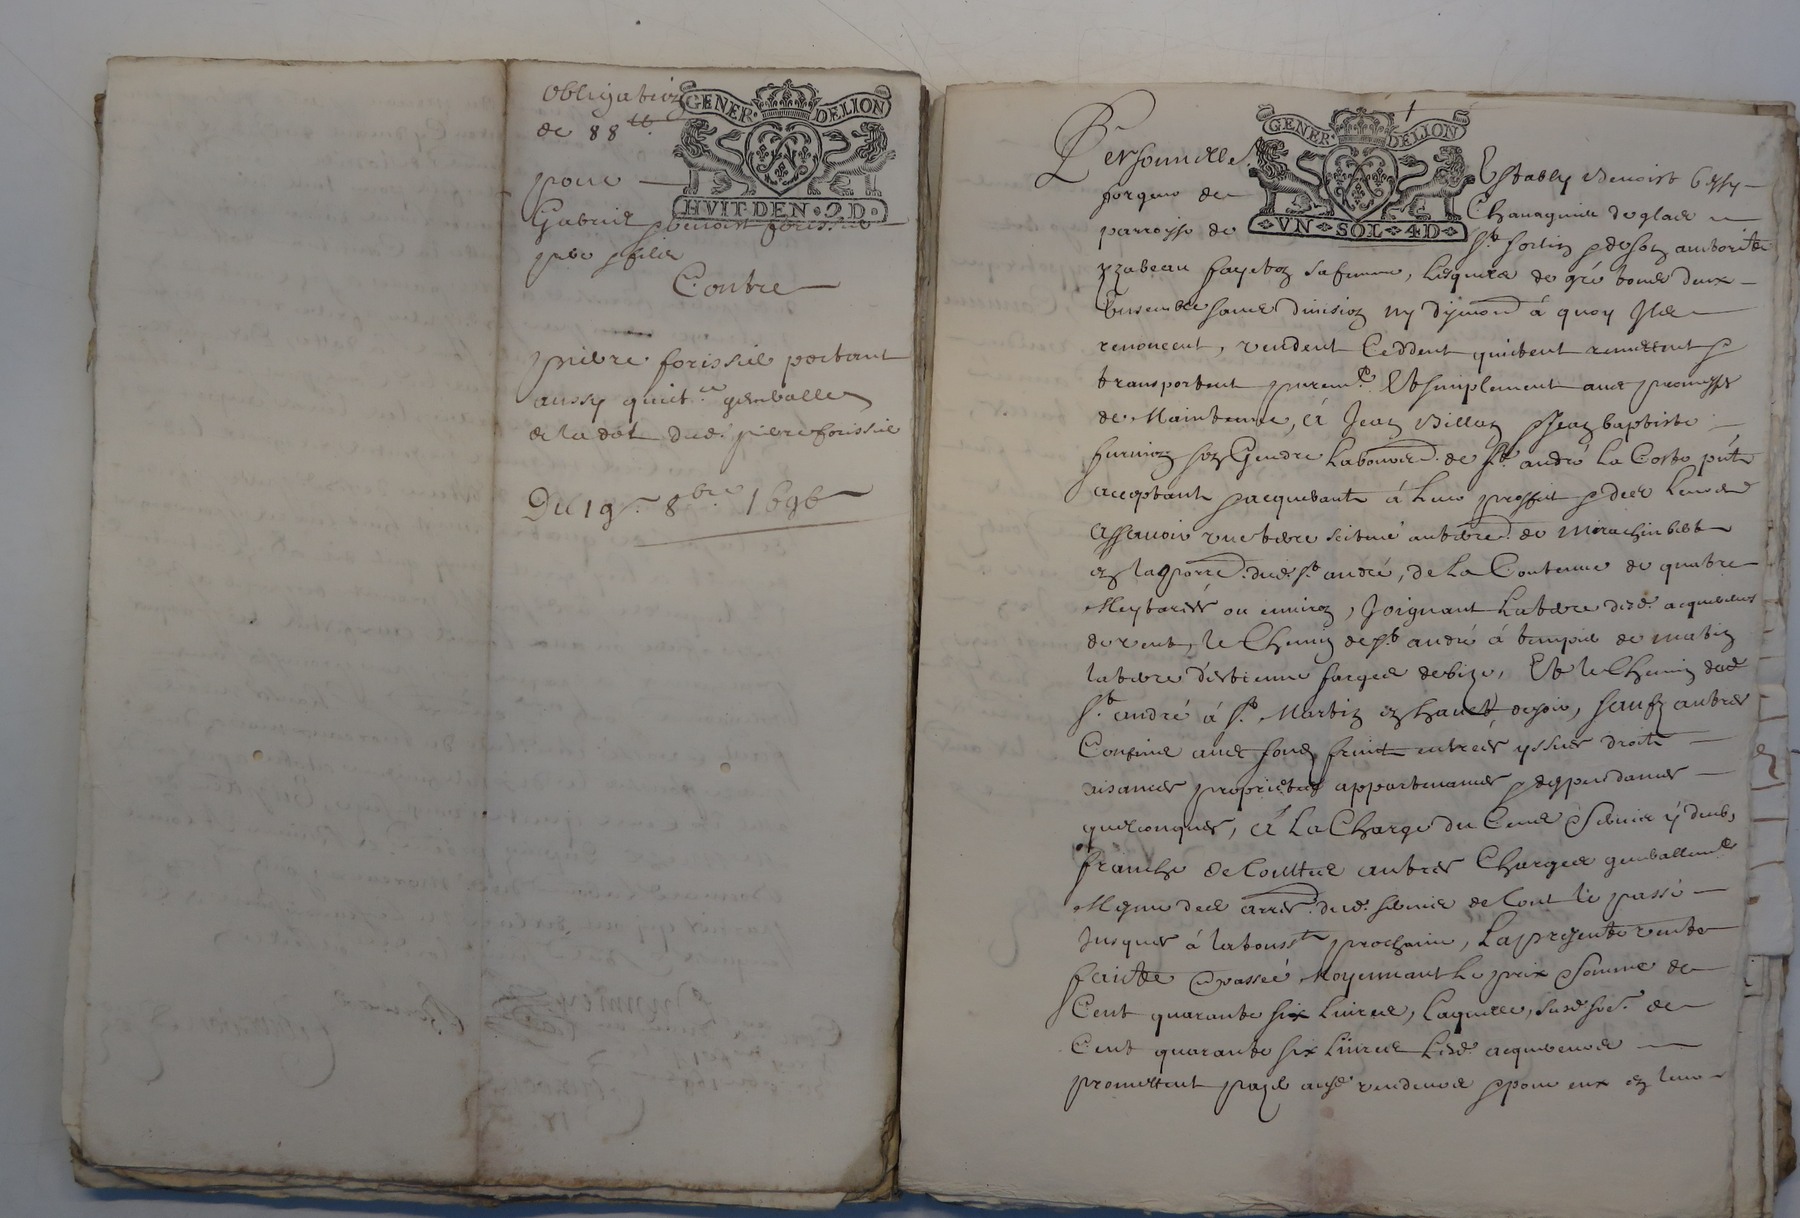 Obligation
de 88 tt.
GENER. DELION
HVIT. DEN. 2D.
pour
Gabriel & benoist forissier
pere & filz
Contre
pierre forissier portant
aussy quict.ce generalle
de la dot dud. pierre forissier
Du 19.e 8bre 1696
GENER. DELION
VN SOL 4D
Personnelle. Establÿ Benoist
forgeur de Chanaguin de glaie
parroisse de St sorlin & de son authorité
yzabeau sa femme, lesquelz de gré tous deux
Ensemble sans division ny à quoy Ilz
renoncent, vendent Ceddent quictent remettent &
transportent purem.t Et simplement avec promesse
de Maintenue, à Jean Billon & Jean baptiste
son Gendre Laboureurs. de St. andré La Coste pñts
acceptants & acquerants à leur proffit & des leurs
Assavoir une terre scituée au terre. de
en la parr. dud. St. andré, de La Contenue de quatre
Meytarées ou environ, Joignant La terre desd. acquereurs
de vent, le Chemin de St andré à de matin
la terre d'estienne farges de bize, Et le Chemin dud.
St. andré à St. Martin en hault de soir, sauf autres
Confins avec fond, fruictz entrées yssues droits
aisances proprietés appartenances & deppendances
quelconques, à La Charge du Cens & servis y deub,
franche de touttes autres Charges generallem.t
Mesme des arrer. dud. servis de tout le passé
Jusques à la touss.ts prochaine, La presente vente
faicte & passée Moyennant Le prix & somme de
Cent quarante six Livres, Laquelle, susd. so.e de
Cent quarante six Livres Lesd. acquereurs
promettent payer ausd. vendeurs & pour eux en leur